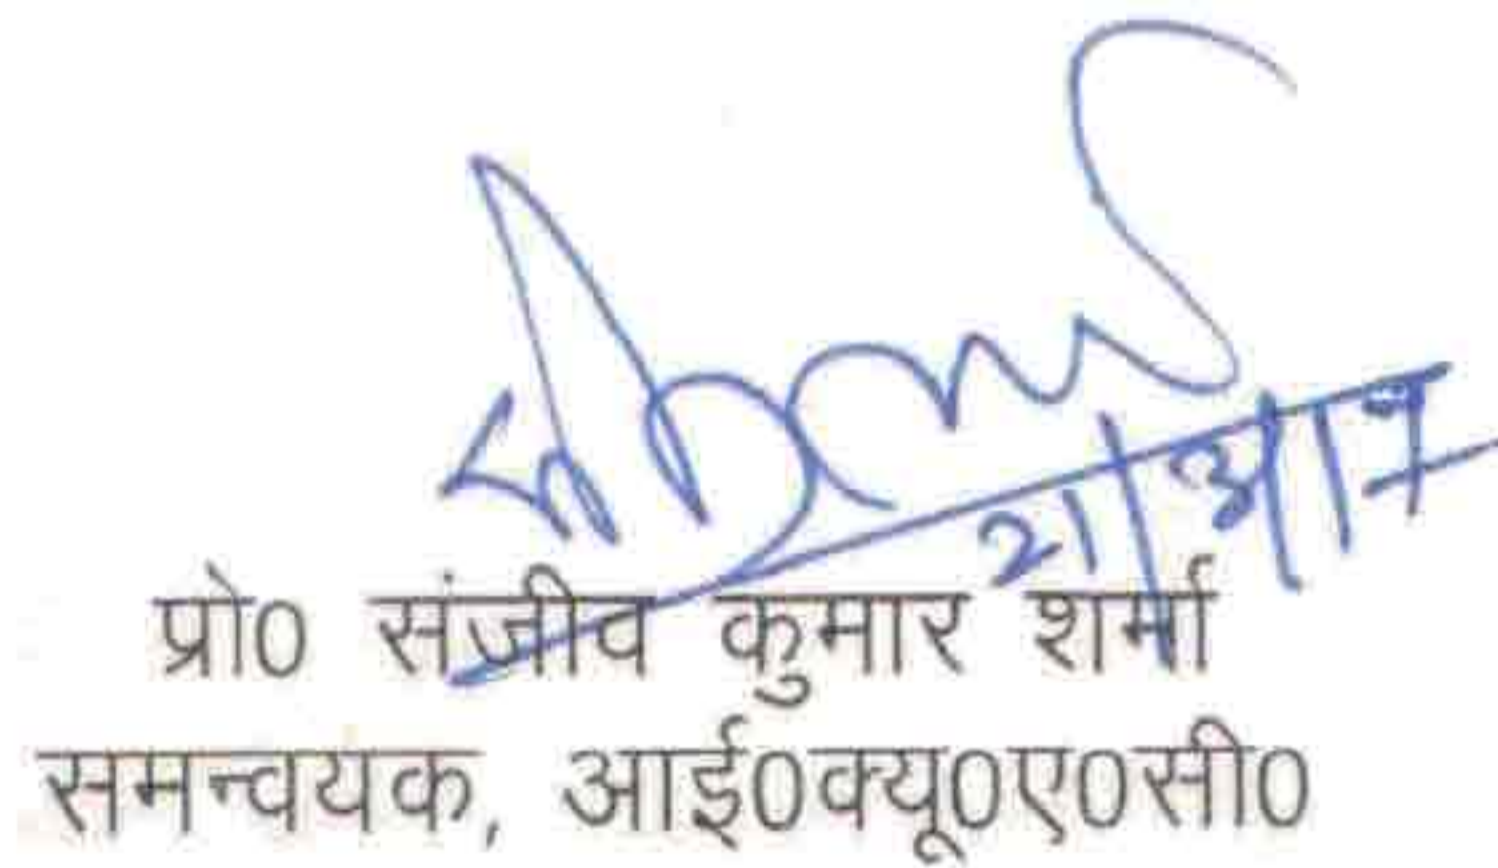 प्रो0 संजीव कुमार शर्मा
समन्वयक, आई0क्यू0ए0सी0